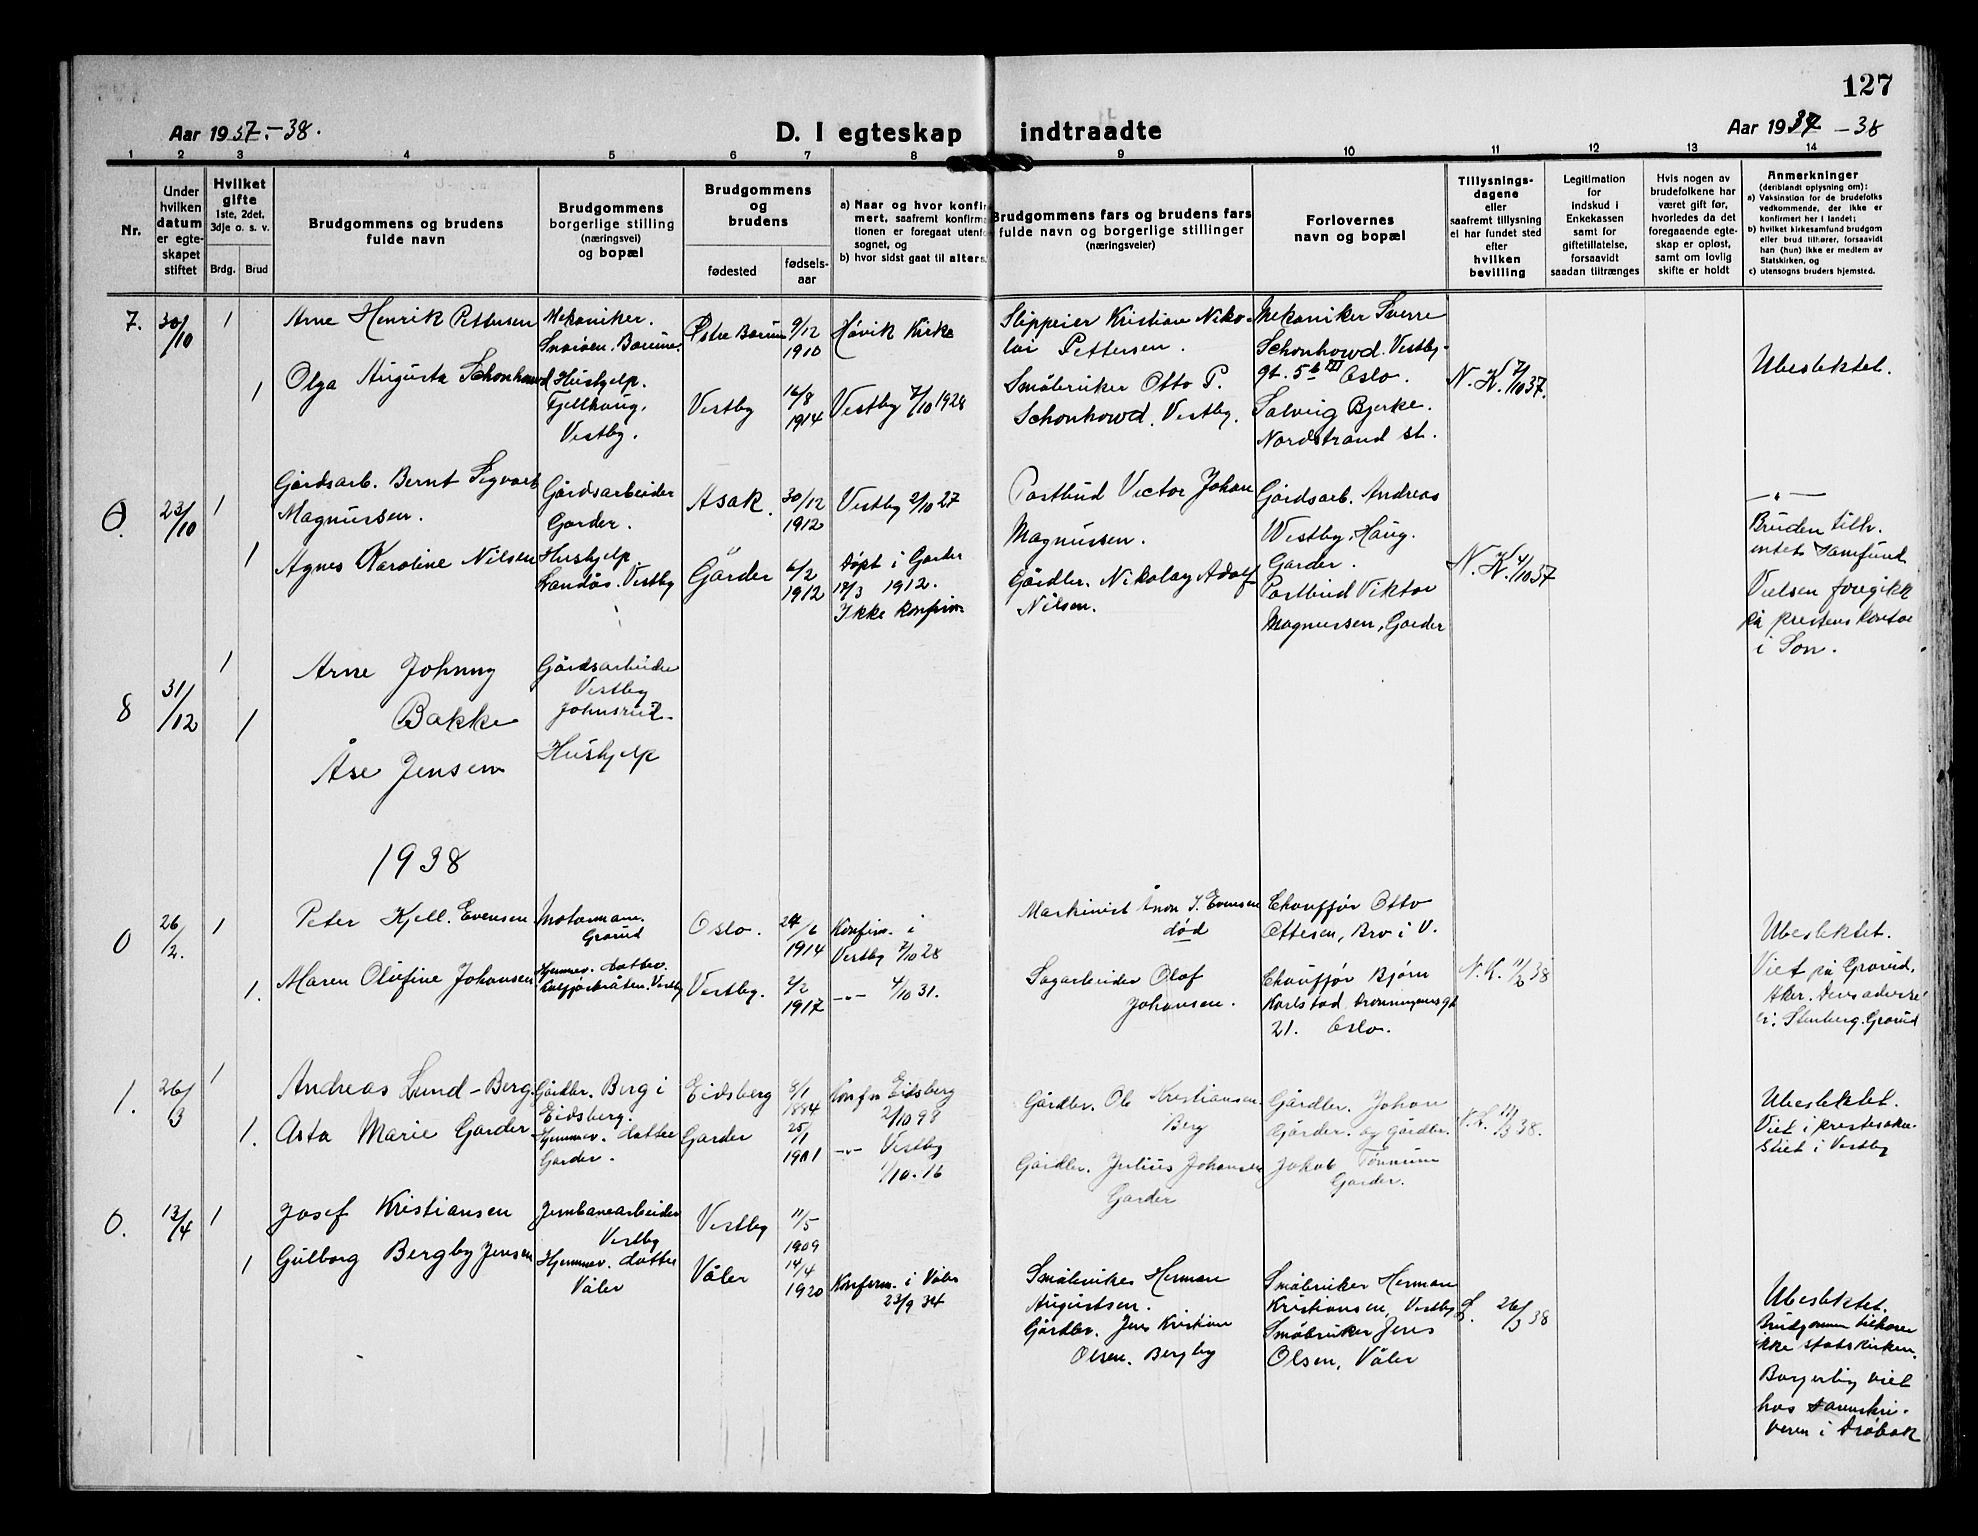 127
Aar 1937.-38.
D. I egteskap indtraadte
Aar 1937 -38
1 2 3 4 5 6 7 8 9 10 11 12 13 14
Nr.
Under
hvilken
datum
er egte-
skapet
stiftet
Hvilket
gifte
1ste, 2det,
3dje o. s. v.
Brdg. Brud
Brudgommens og brudens
fulde navn
Brudgommens
borgerlige stilling
(næringsvei)
og bopæl
Brudgommens
og
brudens
fødested
fødsels-
aar
a) Naar og hvor konfir
mert, saafremt konfirma
tionen er foregaat utenfo
sognet, og
b) hvor sidst gaat til alters.
Brudgommens fars og brudens fars
fulde navn og borgerlige stillinger
(næringsveier)
Forlovernes
navn og bopæl
Tillysnings-
dagene
eller
saafremt tillysning
ei har fundet sted
efter
hvilken
bevilling
Legitimation
for
indskud i
Enkekassen
samt for
giftetillatelse,
forsaavidt
saadan tiltrænges
Hvis nogen av
brudefolkene har
været gift før,
hvorledes da det
foregaaende egte-
skap er opløst,
samt om lovlig
skifte er holdt
Anmerkninger
(deriblandt oplysning om):
a) Vaksination for de brudefolks
vedkommende, der ikke er
konfirmert her i landet;
b) hvilket kirkesamfund brudgom
eller brud tilhører, forsaavidt
han (hun) ikke er medlem av
Statskirken, og
c) utensogns bruders hjemsted.
7. 30/10 1
Arne Henrik Pettersen
Mekaniker.
Snarøen. Bærum.
Østre Bærum
9/12
1910
Høvik Kirke
Slippeier Kristian Niko-
lai Pettersen.
Mekaniker Sverre
Schonhowd. Vestby-
gt. 5b III Oslo.
1
Olga Augusta Schonhowd
Hushjelp.
Fjellhaug,
Vestby.
Vestby
16/8
1914
Vestby 7/10 1928
Småbruker Otto P.
Schonhowd. Vestby.
Solveig Bjerke.
Nordstrand st.
N. K. 7/10 37.
Ubeslektet.
0. 23/10 1
Gårdsarb. Bernt Sigvart
Magnussen.
Gårdsarbeider
Garder.
Asak.
30/12
1912
Vestby 2/10 27
Postbud Victor Johan
Magnussen.
Gårdsarb. Andreas
Westby, Haug.
Garder.
1
Agnes Karoline Nilsen
Hushjelp
Landås. Vestby
Garder
6/2
1912
Døpt i Garder
17/3 1912.
Ikke konfirm
Gårdbr. Nikolay Adolf
Nilsen.
Postbud Viktor
Magnussen, Garder
N. K. 4/10 37
— " —
Bruden tilh.
intet samfund
Vielsen foregikk
på prestens kontor
i Son.
8 31/12 1
1
Arne Johnny
Bakke
Gårdsarbeider
Vestby
Johnsrud.
Åse Jensen
Hushjelp
1938
0 26/2. 1
Peter Kjell. Evensen
Motormann.
Grorud
Oslo.
24/6
1914
Konfirm. i
Vestby 7/10 28
Maskinist Enon I. Evensen
død
Chauffør Otto
Ottesen, Bro i V.
1.
Maren Olufine Johansen
Hjemmev. datter.
Vestby
Vestby.
2/2
1917
—"— 4/10 31.
Sagarbeider Olaf
Johansen.
Chauffør Bjørn
Karlstad, Dronningensgt
21. Oslo.
N. K. 11/2 38
Ubeslektet.
Viet på Grorud,
Aker. Deres adresse
er: Stenberg. Grorud
1. 26/3 1
Andreas Lund-Berg.
Gårdbr. Berg i
Eidsberg.
Eidsberg
8/1
1884
Konfirm Eidsberg
2/10 98
Gårdbr. Ole Kristiansen
Berg
Gårdbr. Johan
Garder. og gårdbr.
Jakob Tønnum
Garder.
1.
Asta Marie Garder
Hjemmev. datter
Garder.
Garder
25/1
1901
—"— Vestby
1/10. 16
Gårdbr. Julius Johansen
Garder
N. K. 11/3 38.
Ubeslektet.
Viet i prestesakri-
stiet i Vestby
0. 13/4 1
Josef Kristiansen
Jernbanearbeider
Vestby
Vestby
11/5
1909
Småbruker Herman
Augustsen.
Småbruker Herman
Kristiansen, Vestby
1
Gulborg Bergby Jensen
Hjemmev. datter
Våler
Våler
14/4
1920
Konfirm. i Våler
23/9 34
Gårdbr. Jens Kristian
Olsen. Bergby
Småbruker Jens
Olsen, Våler
L. 26/3 38
Ubeslektet.
Brudgommen tilhører
ikke statskirken.
Borgerlig viet
hos sorenskri-
veren i Drøbak